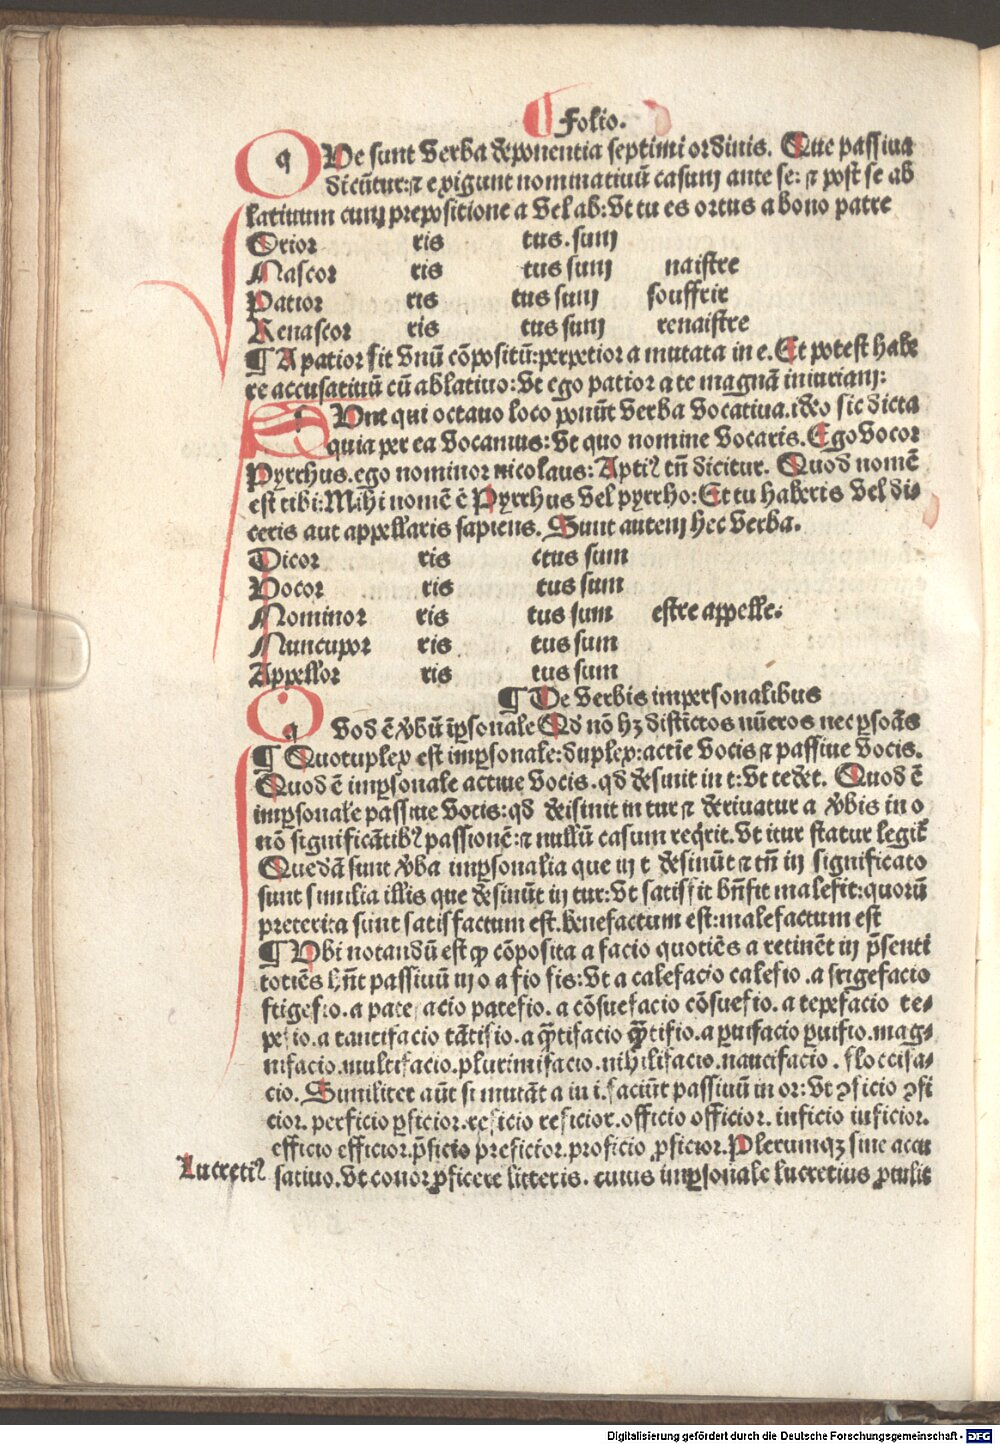 Folio.
QVe sunt verba deponentia septimi ordinis. Que passiua
dicũtur: ⁊ exigunt nominatiuũ casum ante se: ⁊ post se ab
latiuum cum prepositione a vel ab: vt tu es ortus a bono patre
Orior ris tus. sum
Nascor ris tus sum naistre
Patior ris tus sum souffrir
Renascor ris tus sum renaistre
¶ A patior fit vnũ cõpositũ: perpetior a mutata in e. Et potest habe
re accusatiuũ cũ ablatiuo: vt ego patior a te magnã iniuriam:
SVnt qui octauo loco ponũt verba vocatiua. ideo sic dicta
quia per ea vocamus: vt quo nomine vocaris. Ego vocor
Pyrrhus. ego nominor nicolaus: Aptiꝰ tñ dicitur. Quod nomẽ
est tibi: Mihi nomẽ ẽ Pyrrhus vel pyrrho: Et tu haberis vel di⸗
ceris aut appellaris sapiens. Sunt autem hec verba.
Dicor ris ctus sum
Vocor ris tus sum
Nominor ris tus sum estre appelle:
Nuncupor ris tus sum
Appellor ris tus sum
¶ De verbis impersonalibus
qVod ẽ v̾bũ ip̃sonale Qd nõ hꝫ distĩctos nũeros nec ꝑsoãs
¶ Quotuplex est imꝑsonale: duplex: actiẽ vocis ⁊ passiue vocis.
Quod ẽ imꝑsonale actiue vocis. qd desinit in t: vt tedet. Quod ẽ
imꝑsonale passiue vocis: qd deisinit in tur ⁊ deriuatur a v̾bis in o
nõ significãtibꝰ passionẽ: ⁊ nullũ casum reqͥrit. vt itur statur legit̃
Quedã sunt v̾ba imꝑsonalia que in t desinũt ⁊ tñ in significato
sunt similia illis que desinũt in tur: vt satisfit bñfit malefit: quorũ
preterita sunt satisfactum est. benefactum est: malefactum est
¶ Vbi notandũ est ꝙ cõposita a facio quotiẽs a retinẽt in p̃senti
totiẽs hñt passiuũ in o a fio fis: vt a calefacio calefio. a frigefacio
ftigefio. a patefacio patefio. a cõsuefacio cõsuefio. a tepefacio te⸗
pefio. a tantifacio tãtifio. a q̃tifacio q̃tifio. a ꝑuifacio ꝑuifio. mag⸗
nifacio. multifacio. plurimifacio. nihilifacio. naucifacio. floccifa⸗
cio. Similiter aũt si mutãt a in i. faciũt passiuũ in or: vt ꝯficio ꝯfi
cior. perficio ꝑficior. reficio reficior. officio officior. inficio inficior.
efficio efficior. p̃ficio preficior. proficio ꝓficior. Plerumqꝫ sine accu
Lucretiꝰ satiuo. vt conor ꝓficere litteris. cuius imꝑsonale lucretius ꝓtulit
Digitalisierung gefördert durch die Deutsche Forschungsgemeinschaft - DFG